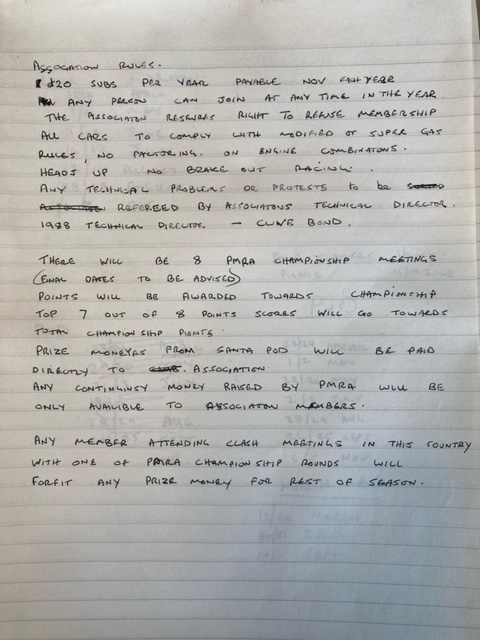 ASSOCATION RULES.
£20 SUBS PER YEAR PAYABLE NOV EACH YEAR
ANY PERSON CAN JOIN AT ANY TIME IN THE YEAR
THE ASSOCIATON RESERVES RIGHT TO REFUSE MEMBERSHIP
ALL CARS TO COMPLY WITH MODIFIED OR SUPER GAS
RULES, NO FACTORING. ON ENGINE COMBINATONS.
HEADS UP NO BRAKE OUT RACING.
ANY TECHNICAL PROBLEMS OR PROTESTS to be
REFEREED BY ASSOCIATONS TECHNICAL DIRECTOR.
1988 TECHNICAL DIRECTOR. — CLIVE BOND.
THERE WILL BE 8 PMRA CHAMPIONSHIP MEETINGS
(FINAL DATES TO BE ADVISED)
POINTS WILL BE AWARDED TOWARDS CHAMPIONCHIP
TOP 7 OUT OF 8 POINTS SCORES WILL GO TOWARDS
TOTAL CHAMPIONSHIP PIONTS.
PRIZE MONEYES FROM SANTA POD WILL BE PAID
DIRECTLY TO ASSOCIATION
ANY CONTINGINSY MONEY RAISED BY PMRA WILL BE
ONLY AVALIBLE TO ASSOCIATON MEMBERS.
ANY MEMBER ATTENDING CLASH MEETINGS IN THIS COUNTRY
WITH ONE OF PMRA CHAMPIONSHIP ROUNDS WILL
FORFIT ANY PRIZE MONEY FOR REST OF SEASON.